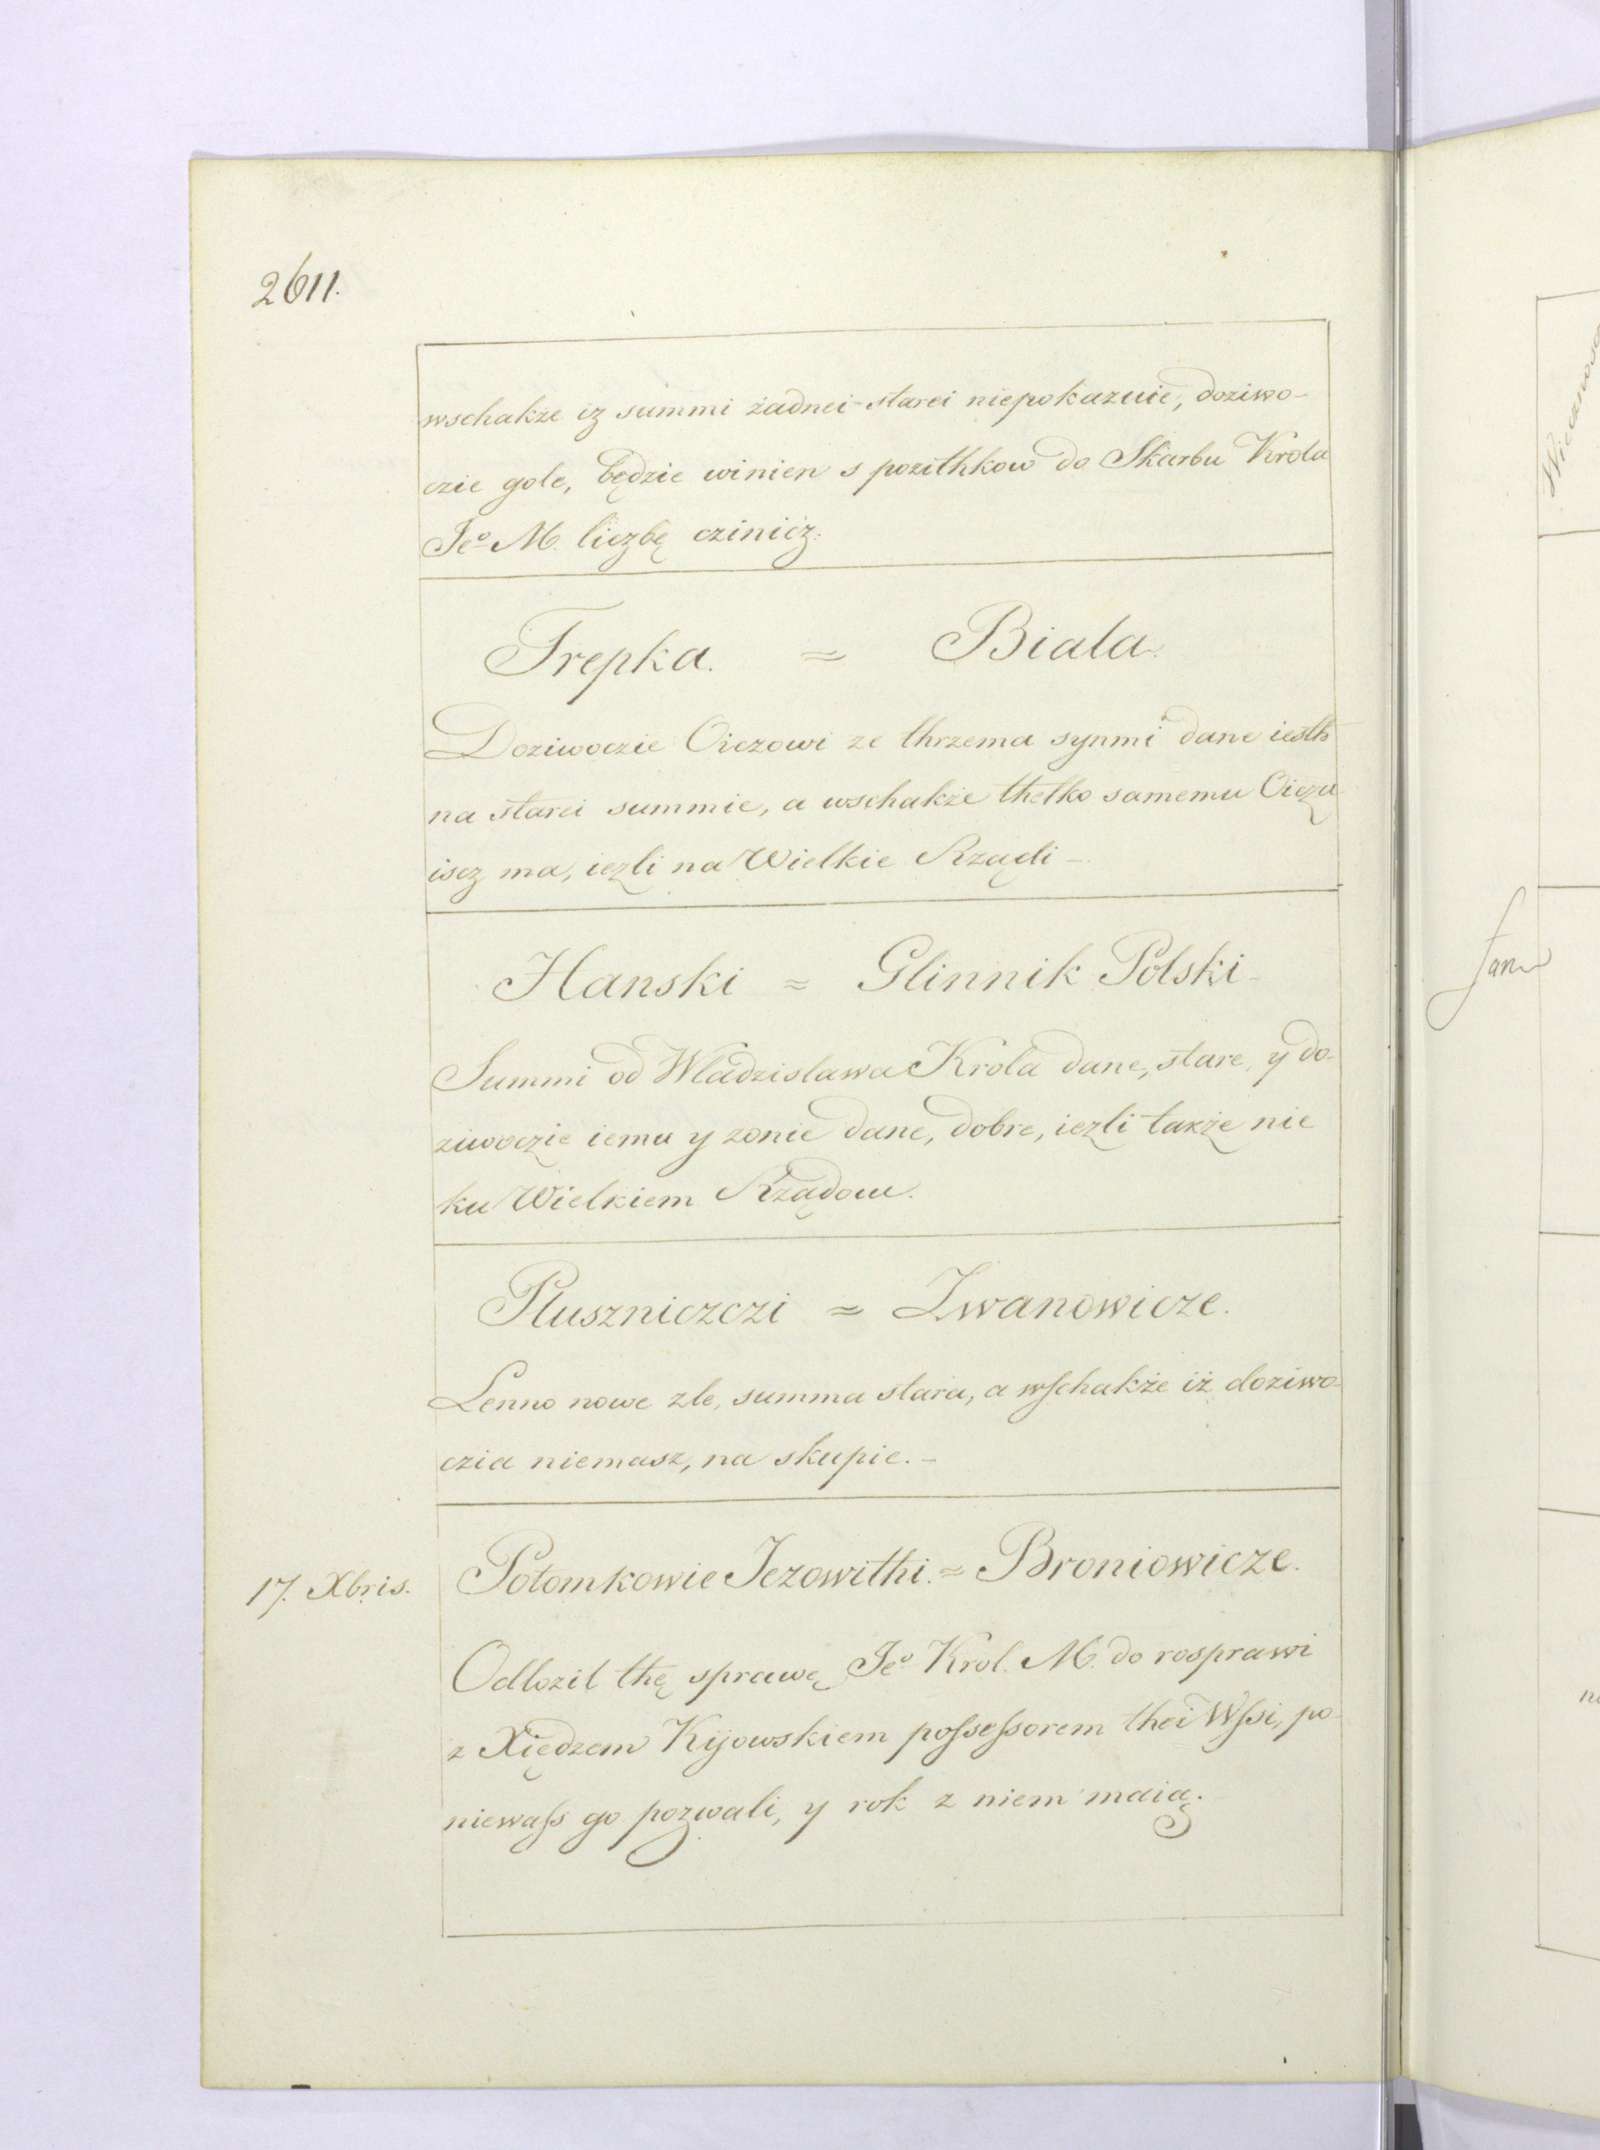 2611.
wschakże iz summi żadnei starei niepokazuie, doziwo-
czie gole, będzie winien s pozithkow do Skarbu Krola
Jeo M. liczbę cziniċz.
Trepka. = Biala.
Doziwoczie Oiczowi ze thrzema synmi dane iesth
na starei summie, a wschakże thelko samemu Oiczu
iscz ma, iezli na Wielkie Rządi -
Hanski = Glinnik Polski -
Summi od Wladzislawa Krola dane, stare, y do-
ziwoczie iemu y zonie dane, dobre, iezli także nie
ku Wielkiem Rządom.
Pluszniczczi = Iwanowicze.
Lenno nowe zle, summa stara, a wschakże iż doziwo-
czia niemasz, na skupie. -
17. Xbris.
Potomkowie Jezowithi. = Broniowicze.
Odlozil thę sprawę Jeo Krol. M. do rosprawi
z Xiędzem Kijowskiem possessorem thei Wssi, po-
niewass go pozwali, y rok z niem maią.